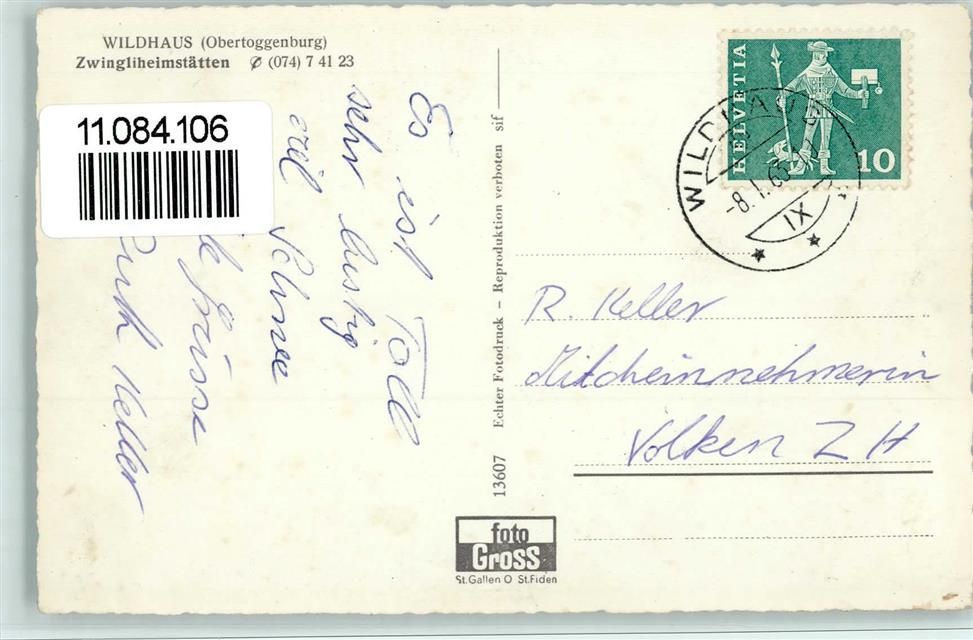 WILDHAUS (Obertoggenburg)
Zwingliheimstätten ✆ (074) 7 41 23
11.084.106
Es ist Toll
sehr lustig
viel Schnee
Grüsse
Ruth Keller
13607 Echter Fotodruck - Reproduktion verboten sif
HELVETIA
10
WILDHAUS
-8.1.65
IX
R. Keller
Milcheinnehmerin
Volken ZH
foto
Gross
St.Gallen O St.Fiden